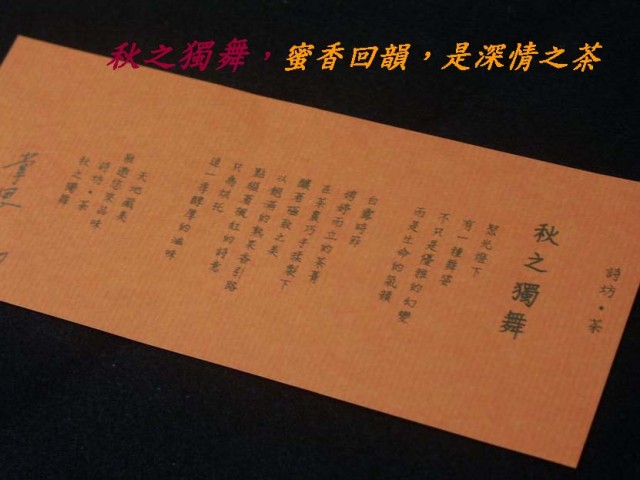 秋之獨舞，蜜香回韻，是深情之茶
詩坊·茶
秋之獨舞
聚光燈下
有一種舞姿
不只是優雅的幻變
而是生命的氣韻
白露時節
娉婷而立的茶菁
在茶農巧手揉製下
釀著極致之美
以飽滿的熟果香引路
點綴著楓紅的詩意
只為烘托
這一季醇厚的滋味
天地藏美
雅邀您來品味
詩坊·茶
秋之獨舞